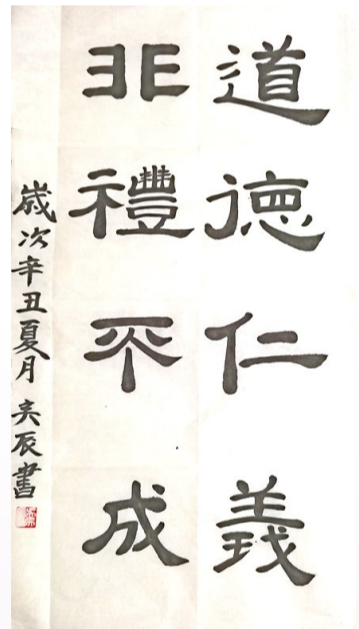 道德仁義
非禮不成
歲次辛丑夏月 吴辰書